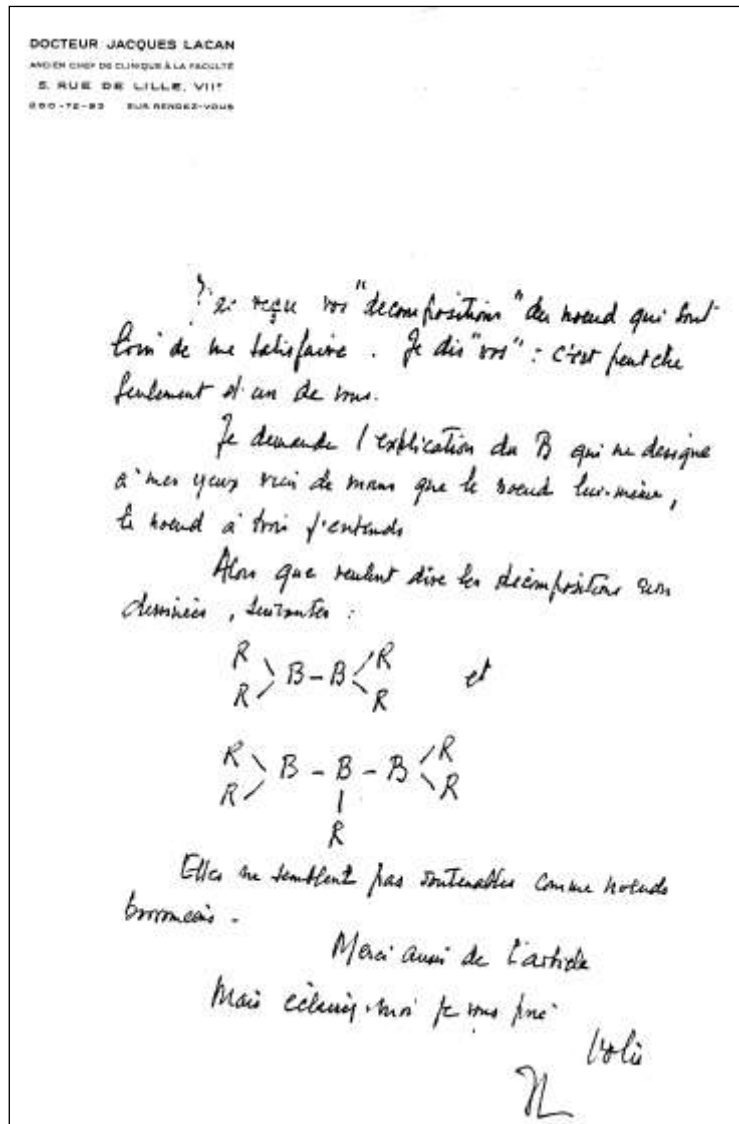 DOCTEUR JACQUES LACAN
ANCIEN CHEF DE CLINIQUE À LA FACULTÉ
5, RUE DE LILLE, VIIe
260-72-93 SUR RENDEZ-VOUS
J'ai reçu vos "decompositions" du noeud qui sont
loin de me satisfaire. Je dis "vos" : c'est peut être
seulement d'un de vous.
Je demande l'explication du B qui ne designe
à mes yeux rien de moins que le noeud lui-même,
le noeud à trois j'entends
Alors que veulent dire les décompositions
dessinées, suivantes :
R R B - B R R et
R R B - B - B R R
R
Elles ne semblent pas soutenables comme noeuds
borroméens.
Merci aussi de l'article
Mais éclairez-moi je vous prie
Votre
JL